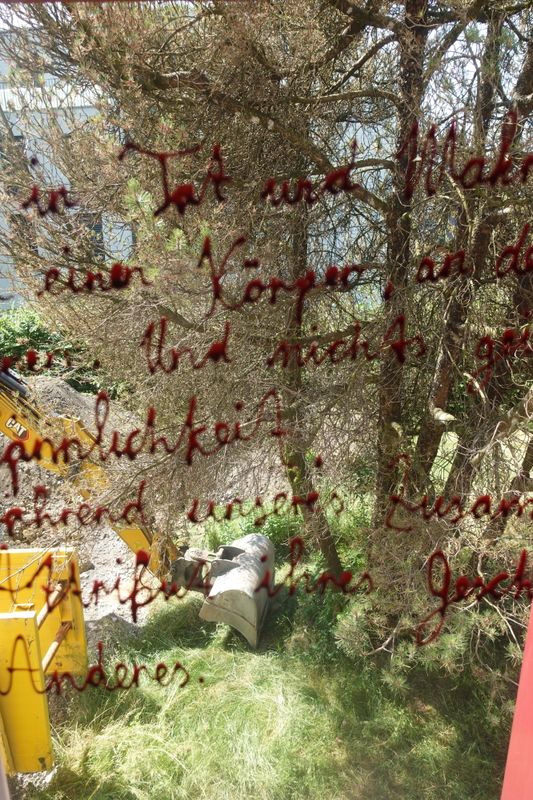 in Tat und Wahr
einen Körper, an de
ren. Und nichts grö
ännlichkeit
ährend unseres Zusam
Attribut ihres Gesch
Anderes.
CAT